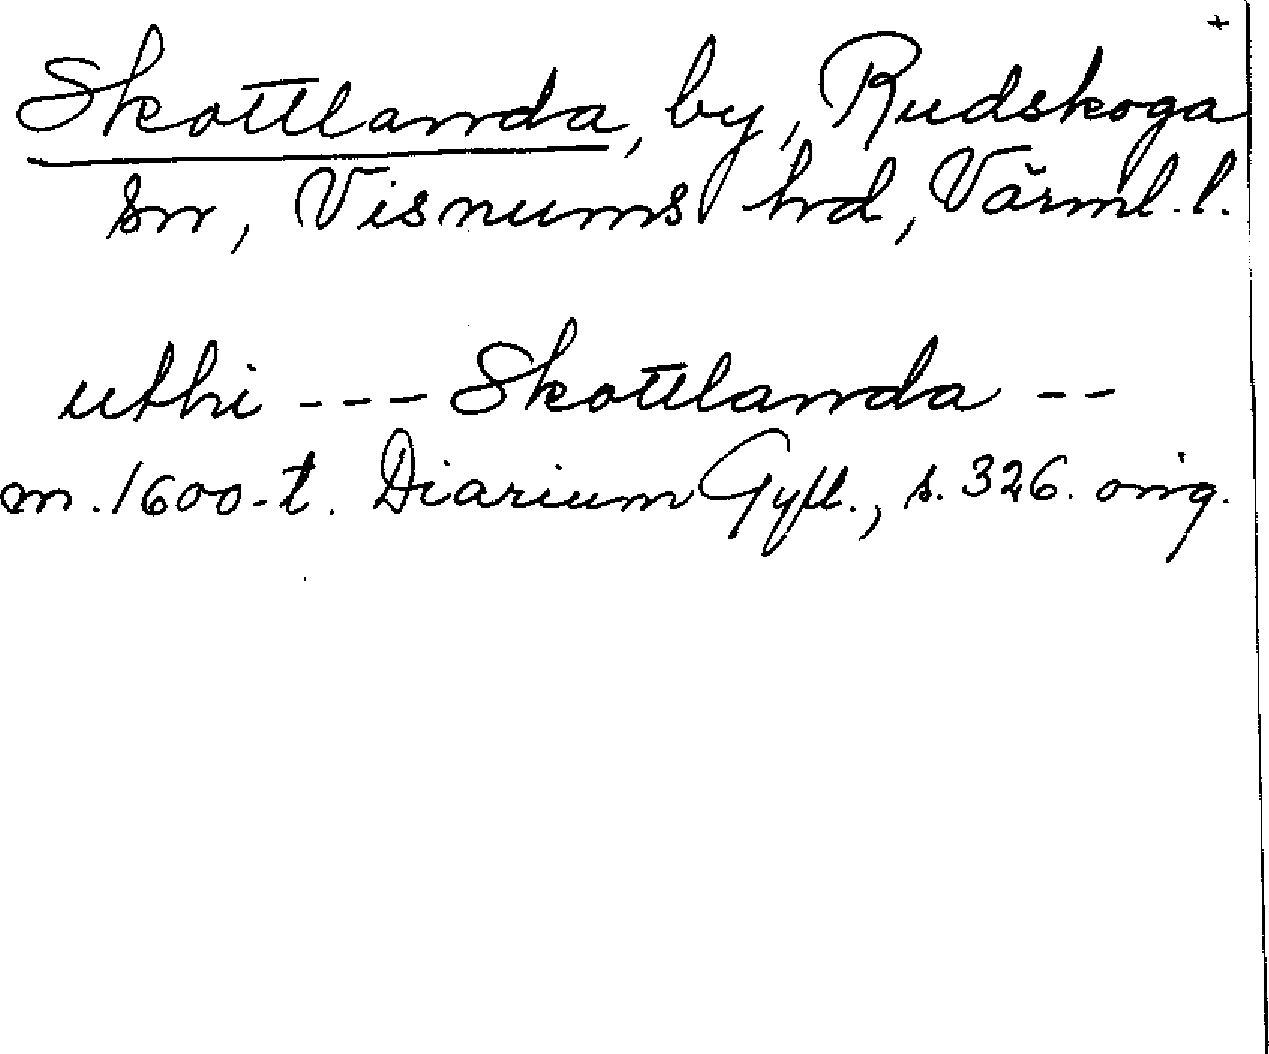 +
Skottlanda, by, Rudskoga
sn, Visnums hd, Värml. l.
uthi --- Skottlanda --
m. 1600-t. Diarium Gyll., s. 326. orig.